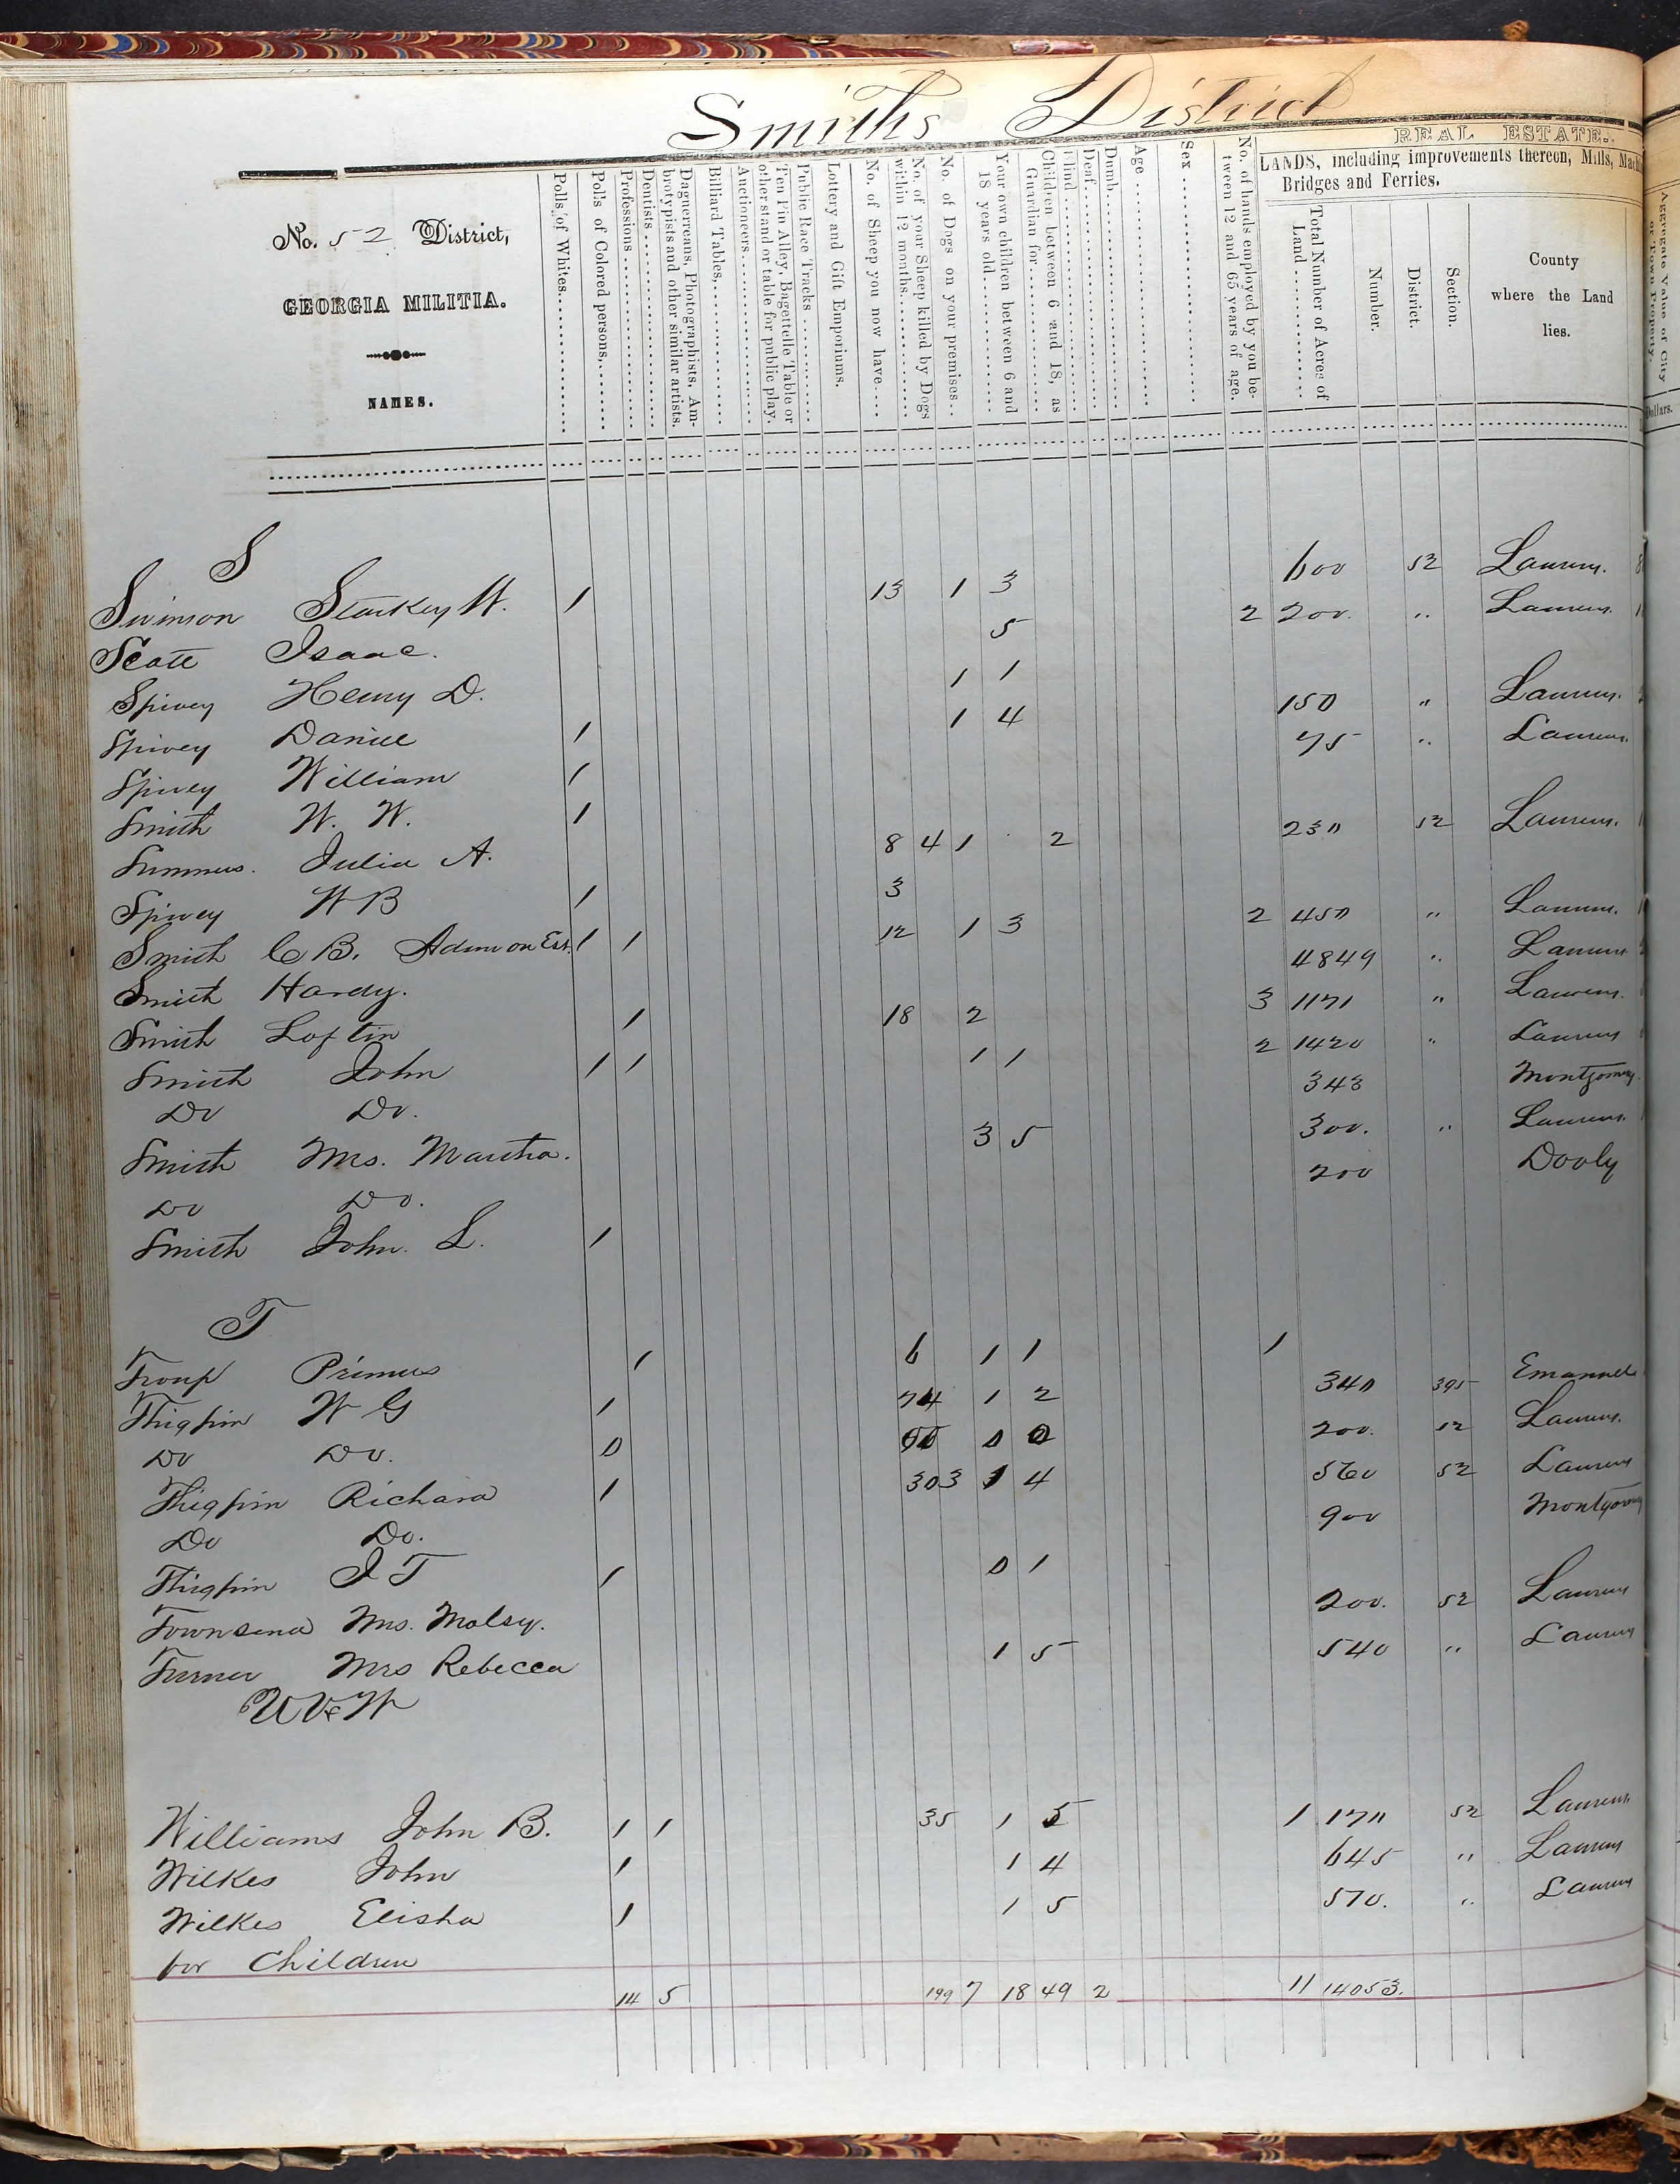 Smiths District
No. 52 District,
GEORGIA MILITIA.
NAMES.
Polls of Whites
Polls of Colored persons
Professions
Dentists
Daguerreans, Photographists, Ambrotypists and other similar artists.
Billiard Tables,
Auctioneers
Ten Pin Alley, Bagettelle Table or other stand or table for public play.
Public Race Tracks
Lottery and Gift Emporiums.
No. of Sheep you now have
No. of your Sheep killed by Dogs within 12 months
No. of Dogs on your premises
Your own children between 6 and 18 years old
Children between 6 and 18, as Guardian for
Blind
Deaf
Dumb
Age
Sex
No. of hands employed by you between 12 and 65 years of age.
REAL ESTATE.
LANDS, including improvements thereon, Mills,
Bridges and Ferries.
Total Number of Acres of Land
Number.
District.
Section.
County where the Land lies.
Aggregate Value of City or Town Property.
Dollars.
S
Swinson Starkey W. 1 13 1 3 600 52 Laurens.
Scott Isaac. 5 2 200. " Laurens.
Spivey Henry D. 1 1
Spivey Daniel 1 1 4 150 " Laurens.
Spivey William 1 75 " Laurens.
Smith W. W. 1
Summers. Julia A. 8 4 1 2 230 52 Laurens.
Spivey W B 1 3
Smith C B. Adm on Est. 1 1 12 1 3 2 450 " Laurens.
Smith Hardy. 4849 " Laurens
Smith Loftin 1 18 2 3 1171 " Laurens.
Smith John 1 1 1 1 2 1420 " Laurens
Do Do. 343 Montgomery.
Smith Mrs. Martha. 3 5 300. " Laurens.
Do Do. 200 Dooly
Smith John. L. 1
T
Troup Primus 1 6 1 1 1
Thigpin W G 1 74 1 2 340 395 Emanuel
Do Do. 0 0 0 200. 52 Laurens.
Thigpin Richard 1 30 3 1 4 560 52 Laurens
Do Do. 900 Montgomery
Thigpin J T 1 0 1
Townsend Mrs. Molsey. 200. 52 Laurens
Turner Mrs Rebecca 1 5 540 " Laurens
U V & W
Williams John B. 1 1 35 1 5 1 170 52 Laurens
Wilkes John 1 1 4 645 " Laurens
Wilkes Elisha 1 1 5 570. " Laurens
for Children
14 5 199 7 18 49 2 11 14053.